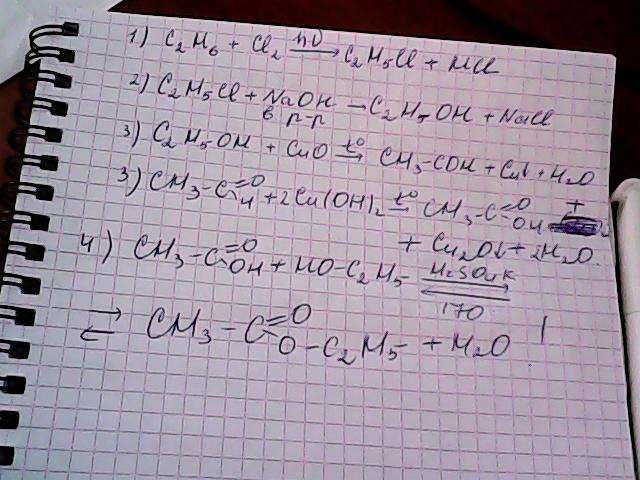 1) C₂H₆ + Cl₂ —hν→ C₂H₅Cl + HCl
2) C₂H₅Cl + NaOH → C₂H₅OH + NaCl
в р-р
3) C₂H₅OH + CuO —t°→ CH₃-COH + Cu↓ + H₂O
3) CH₃-C=O H + 2Cu(OH)₂ —t°→ CH₃-C=O OH +
+ Cu₂O↓ + 2H₂O
4) CH₃-C=O OH + HO-C₂H₅ H₂SO₄ к ⇄ 170
⇄ CH₃-C=O O-C₂H₅ + H₂O